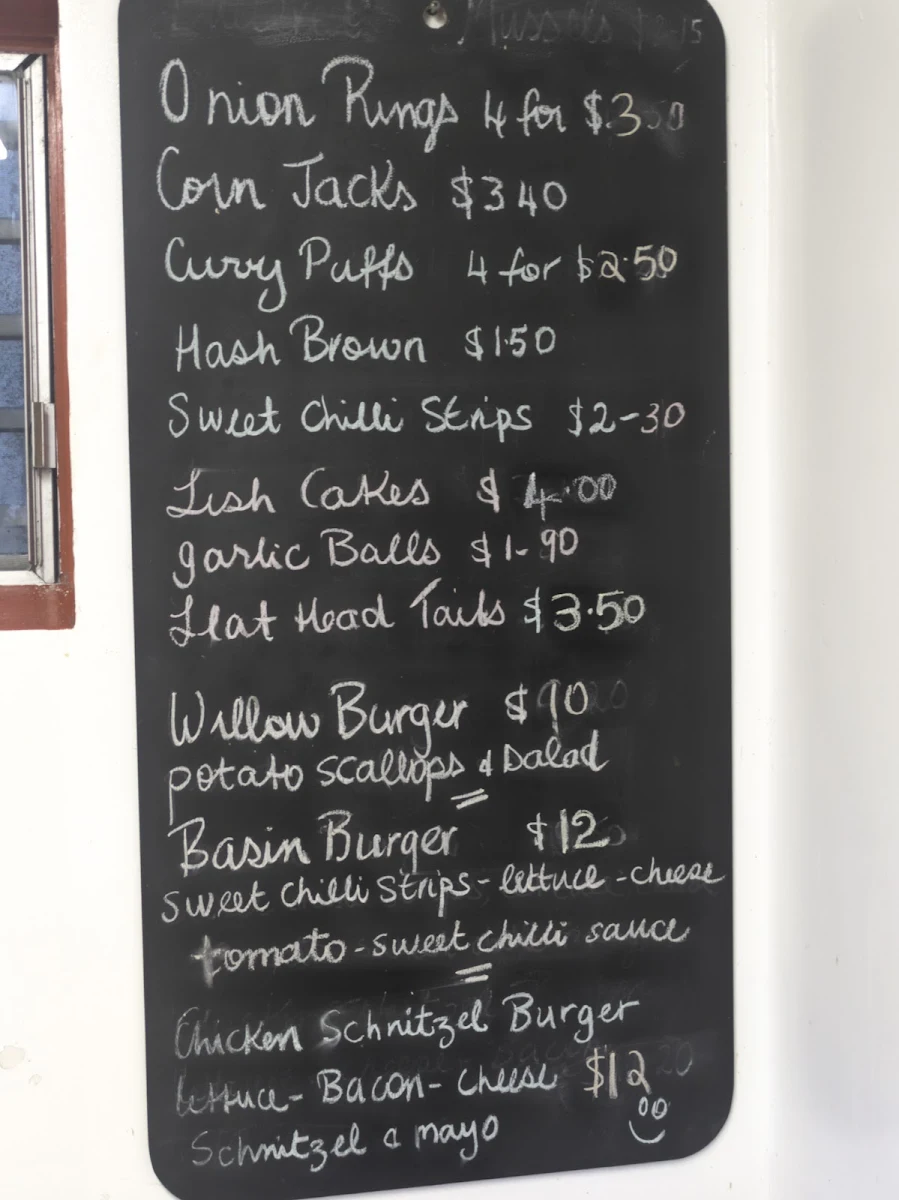 Mussels
Onion Rings 4 for $3
Corn Jacks $340
Curry Puffs 4 for $2.50
Hash Brown $1.50
Sweet Chilli Strips $2-30
Fish Cakes $4.00
garlic Balls $1-90
Flat Head Tails $3.50
Willow Burger $90
potato scallops & salad
Basin Burger $12
sweet chilli strips - lettuce - cheese
tomato - sweet chilli sauce
Chicken Schnitzel Burger
lettuce - Bacon - cheese $12
Schnitzel & mayo